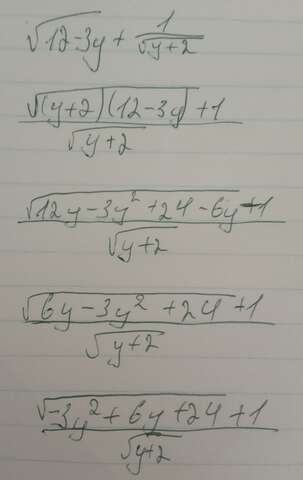 √(12-3y) + 1/√(y+2)
(√((y+2)(12-3y)) + 1)/√(y+2)
(√(12y-3y²+24-6y) + 1)/√(y+2)
(√(6y-3y²+24) + 1)/√(y+2)
(√(-3y²+6y+24) + 1)/√(y+2)